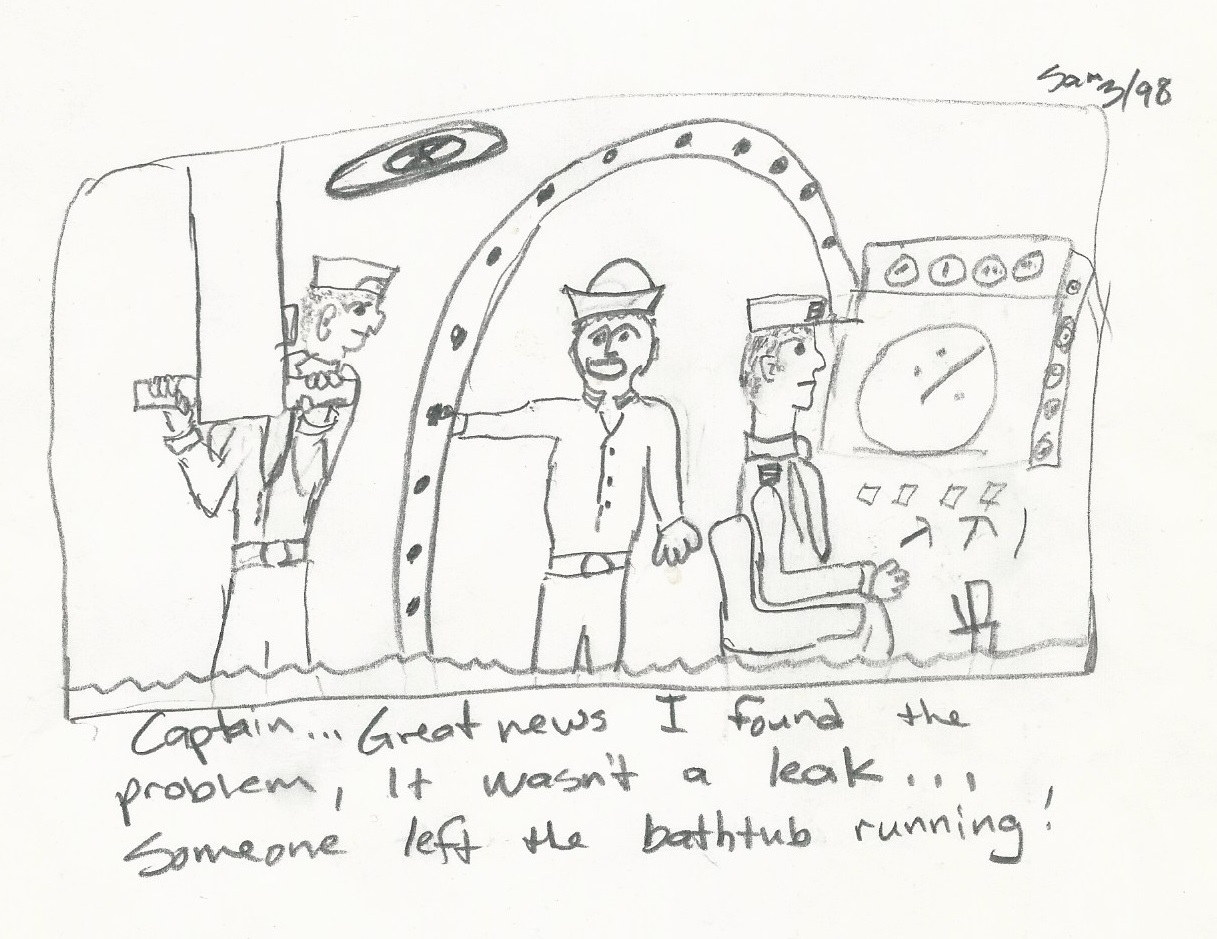 Sam 3/98
Captain... Great news I found the
problem, It wasn't a leak...
Someone left the bathtub running!